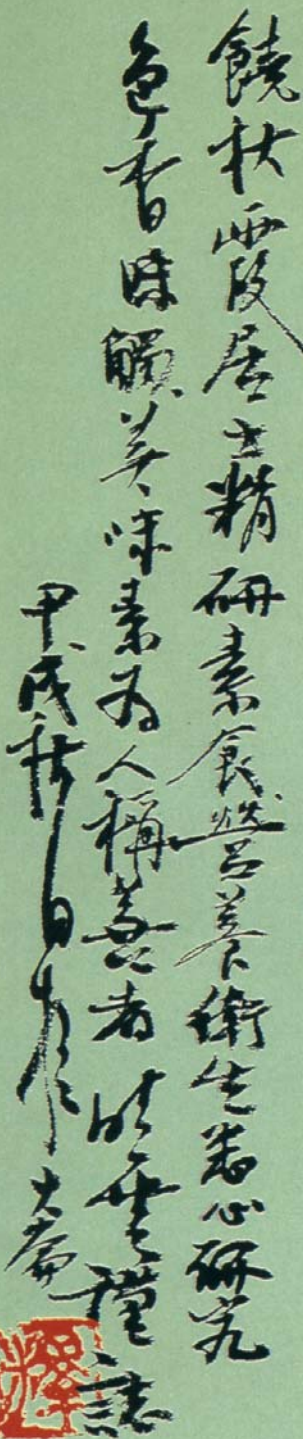 饒秋霞居士精研素食營養衛生悉心研究
色香味觸美味素為人稱善者 曉雲謹誌
甲戌秋日於大崙